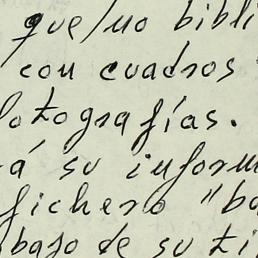 que/no bibli
con cuadros
fotografías.
á su inform
fichero "ba
bajo de su ti